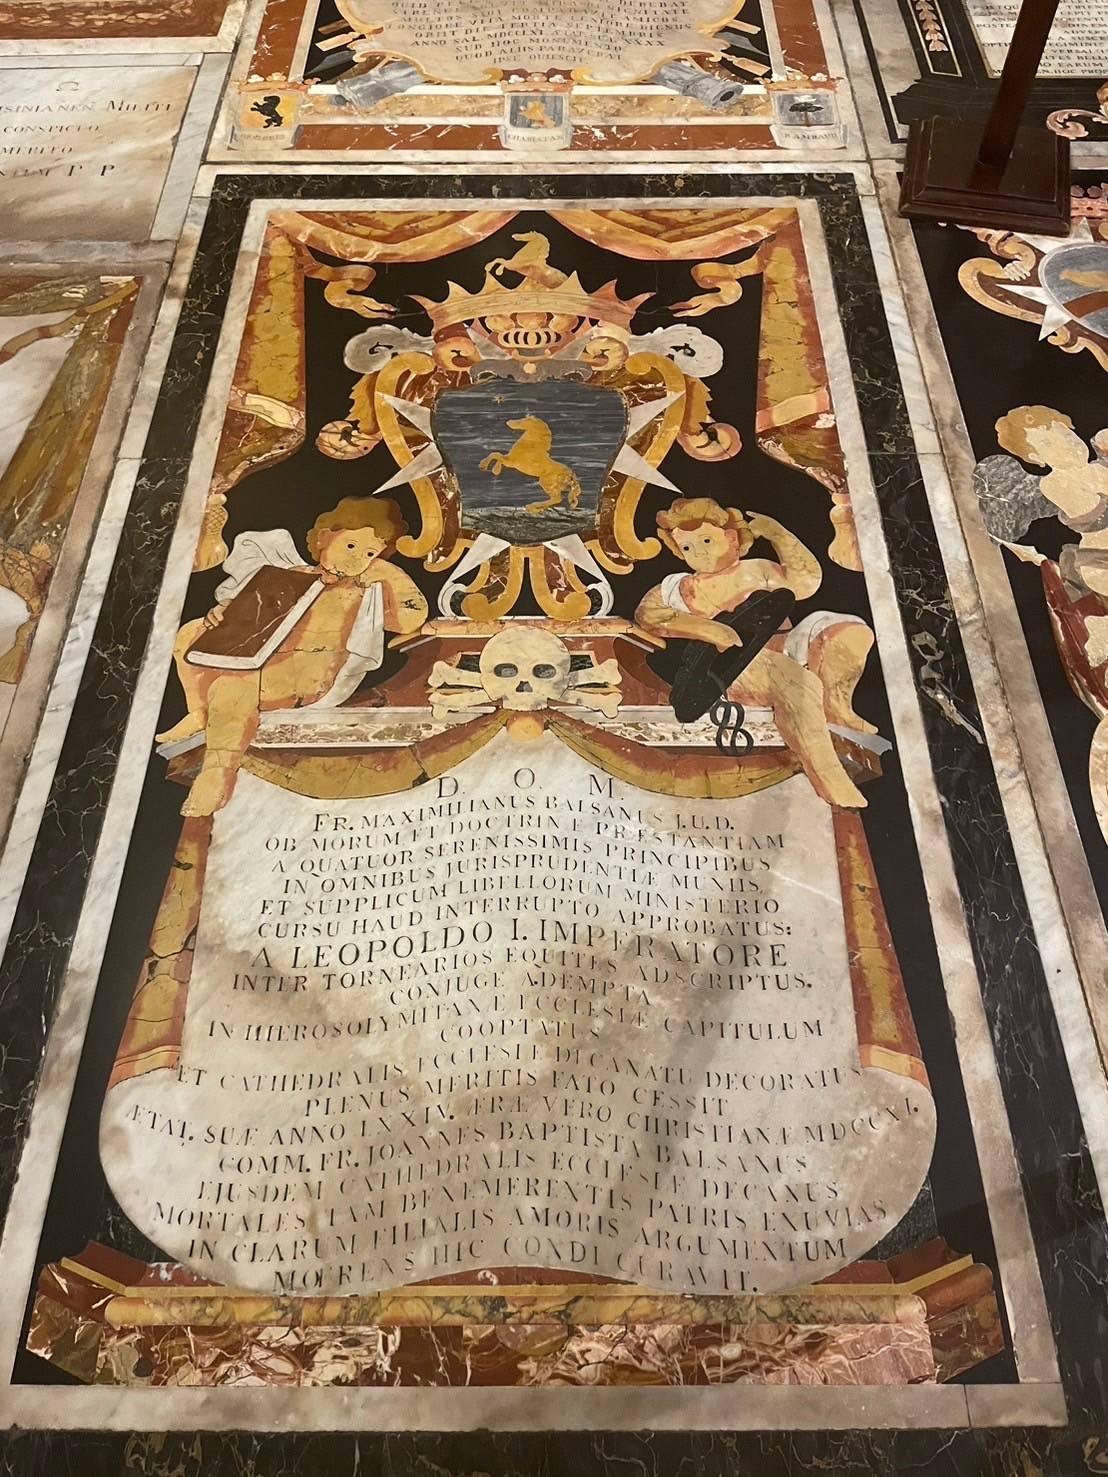 ANNO SAL. MDCCLXI.
SUB HOC MONUMENTO
QUOD ALIIS PARAVERAT
IPSE QUIESCIT
CHABESTAN
RAMBAUD
SINIANEN MILITI
CONSPICUO
MERITO
P P
D. O. M.
FR. MAXIMILIANUS BALSANUS J.U.D.
OB MORUM ET DOCTRINÆ PRÆSTANTIAM
A QUATUOR SERENISSIMIS PRINCIPIBUS
IN OMNIBUS JURISPRUDENTIÆ MUNIIS,
ET SUPPLICUM LIBELLORUM MINISTERIO
CURSU HAUD INTERRUPTO APPROBATUS:
A LEOPOLDO I. IMPERATORE
INTER TORNEARIOS EQUITES ADSCRIPTUS.
CONJUGE ADEMPTA
IN HIEROSOLYMITANÆ ECCLESIÆ CAPITULUM
COOPTATUS
ET CATHEDRALIS ECCLESIÆ DECANATU DECORATUS
PLENUS MERITIS FATO CESSIT
ÆTAT. SUÆ ANNO LXXIV. ÆRÆ VERO CHRISTIANÆ MDCCXI.
COMM. FR. JOANNES BAPTISTA BALSANUS
EJUSDEM CATHEDRALIS ECCLESIÆ DECANUS
MORTALES TAM BENEMERENTIS PATRIS EXUVIAS
IN CLARUM FILIALIS AMORIS ARGUMENTUM
MOERENS HIC CONDI CURAVIT.